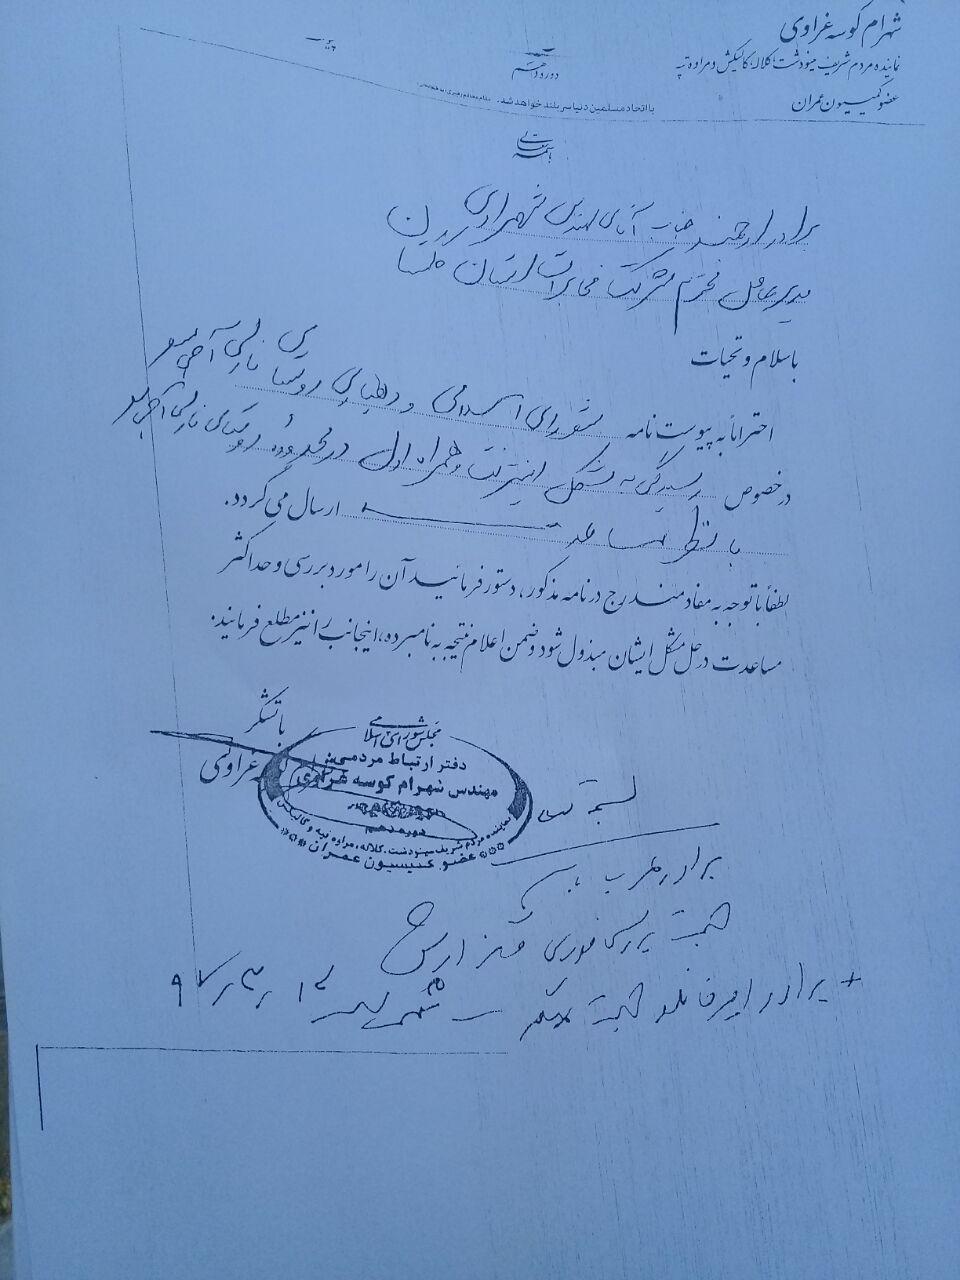 شهرام کوسه غراوی
نماینده مردم شریف مینودشت، کلاله، گالیکش و مراوه تپه
عضو کمیسیون عمران
دوره دهم
با اتحاد مسلمین دنیا سربلند خواهد شد.
باسمه تعالی
برادر ارجمند جناب آقای مهندس شهرادی
مدیرعامل محترم شرکت مخابرات استان گلستان
با سلام و تحیات
احتراماً به پیوست نامه شورای اسلامی و دهیاری روستای
در خصوص رسیدگی به مشکل اینترنت و همراه اول در محدوده روستای
با نظر مساعد ارسال می گردد.
لطفاً با توجه به مفاد مندرج در نامه مذکور، دستور فرمائید آن را مورد بررسی و حداکثر
مساعدت در حل مشکل ایشان مبذول شود و ضمن اعلام نتیجه به نامبرده، اینجانب را نیز مطلع فرمائید.
با تشکر
شهرام کوسه غراوی
مجلس شورای اسلامی
دفتر ارتباط مردمی
مهندس شهرام کوسه غراوی
دوره دهم
نماینده مردم شریف مینودشت، کلاله، مراوه تپه و گالیکش
عضو کمیسیون عمران
برادر
جهت بررسی فوری و گزارش
+ برادر جهت
۹۷٫۳٫۱۲